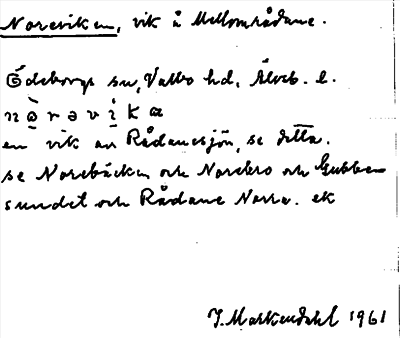 Noreviken, vik å Mellområdane.
Ödeborgs sn, Valbo hd, Älvsb. l.
en vik av Rådanesjön, se detta.
se Norebäcken och Norebro och Gubben
sundet och Rådane Norra. ek
J. Markendahl 1961